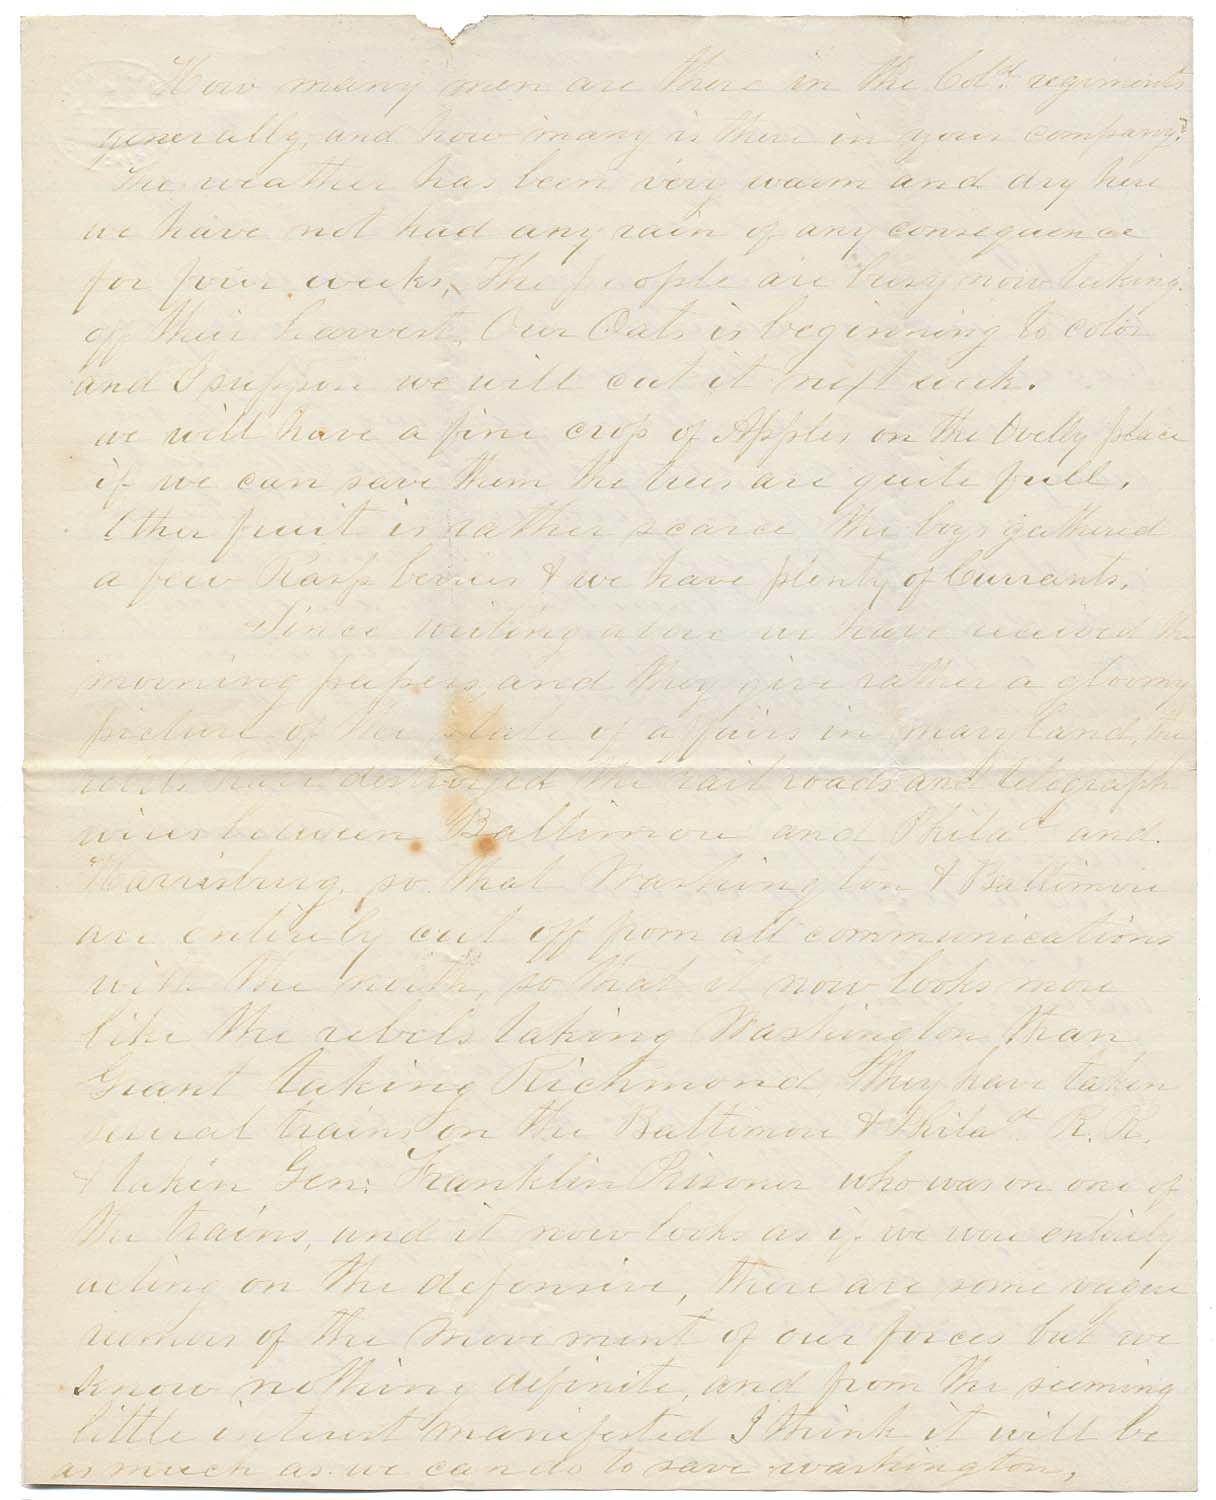 How many men are there in the Cold. regiments
generally, and how many is there in your company?
The weather has been very warm and dry here
we have not had any rain of any consequence
for four weeks, The people are busy now taking
off their harvest, Our Oats is beginning to color
and I suppose we will cut it next week.
we will have a fine crop of Apples on the place
if we can save them the trees are quite full,
Other fruit is rather scarce the boys gathered
a few Rasp berries & we have plenty of Currants.
Since writing above we have received the
morning papers, and they give rather a gloomy
picture of the state of affairs in maryland, the
rebels have destroyed the rail roads and telegraph
wires between Baltimore and Philad and
Harrisburg, so that Washington & Baltimore
are entirely cut off from all communications
with the north, so that it now looks more
like the rebels taking Washington than
Grant taking Richmond, they have taken
several trains on the Baltimore & Philad. R. R.
& taken Gen. Franklin Prisoner who was on one of
the trains, and it now looks as if we were entirely
acting on the defensive, there are some vague
rumors of the movement of our forces but we
know nothing definite, and from the seeming
little interest manifested I think it will be
as much as we can do to save washington,